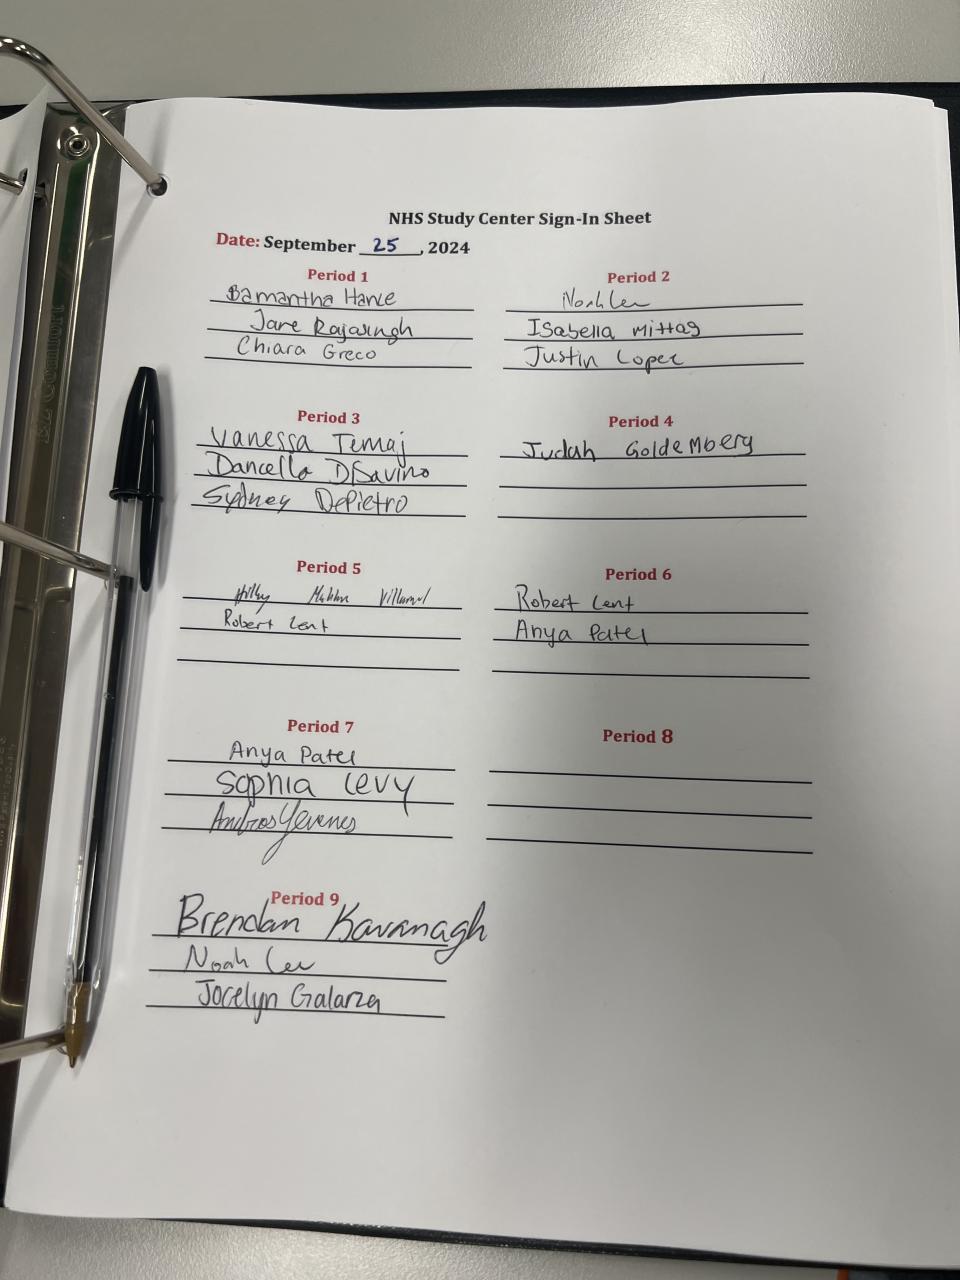 NHS Study Center Sign-In Sheet
Date: September 25, 2024
Period 1
Samantha Hance
Jare Rajasingh
Chiara Greco
Period 2
Noah Lee
Isabella Mittag
Justin Loper
Period 3
Vanessa Temaj
DiSavino
Sydney DePietro
Period 4
Judah Goldemberg
Period 5
Robert Lent
Period 6
Robert Lent
Anya Patel
Period 7
Anya Patel
Sophia Levy
Andros Yevenes
Period 8
Period 9
Brendan Kavanagh
Noah Lee
Jocelyn Galarza